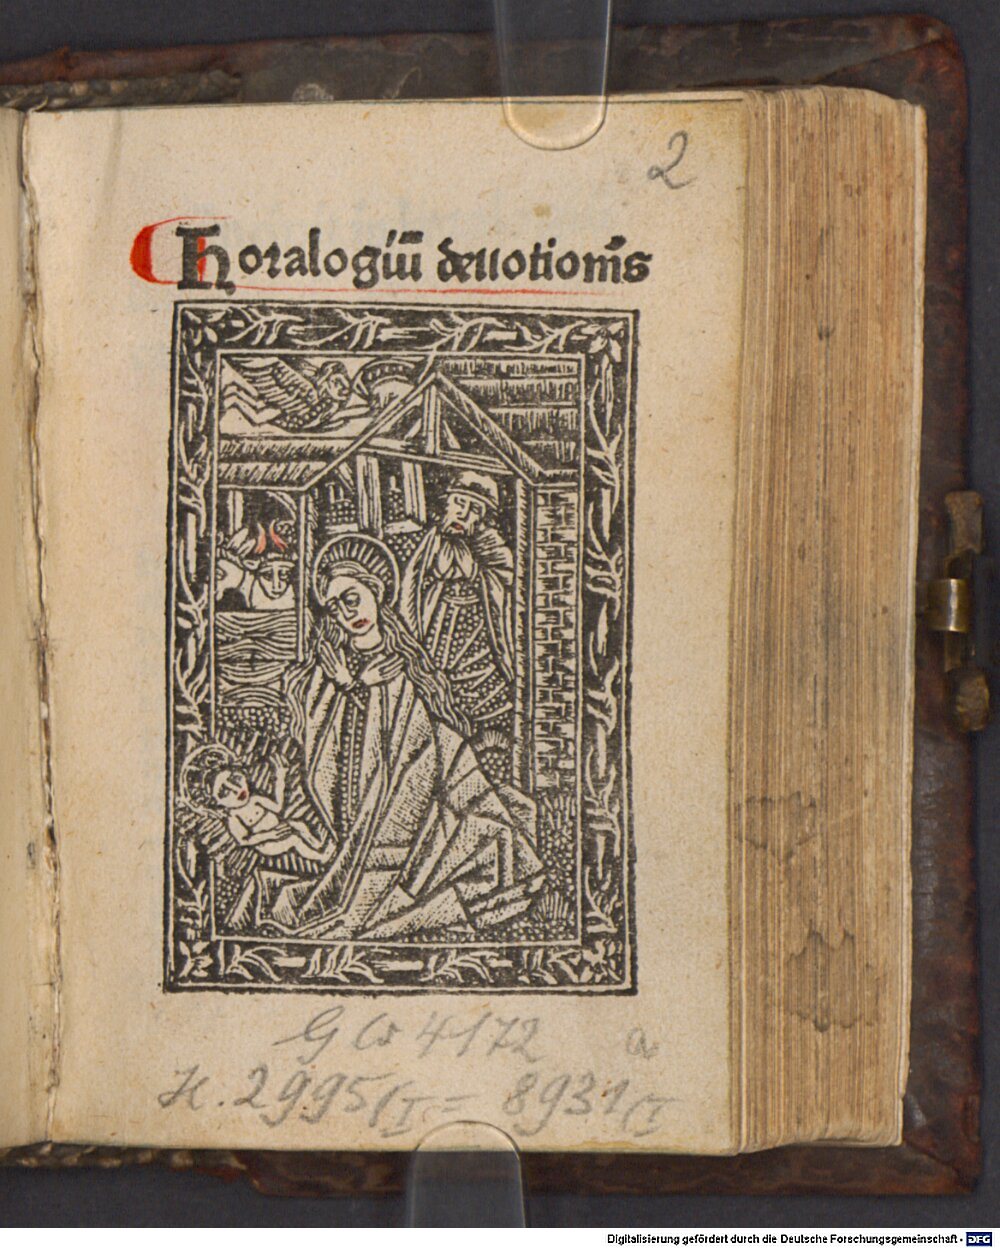 2
Horalogiū deuotiōis
GW 4172 a
H. 2995 (I = 8931 (I
Digitalisierung gefördert durch die Deutsche Forschungsgemeinschaft - DFG